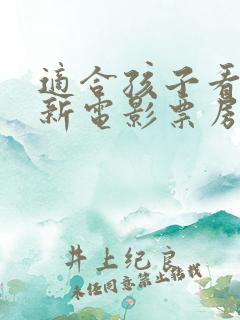 適合孩子看
新電影票房
井上纪良
未经同意禁止转载